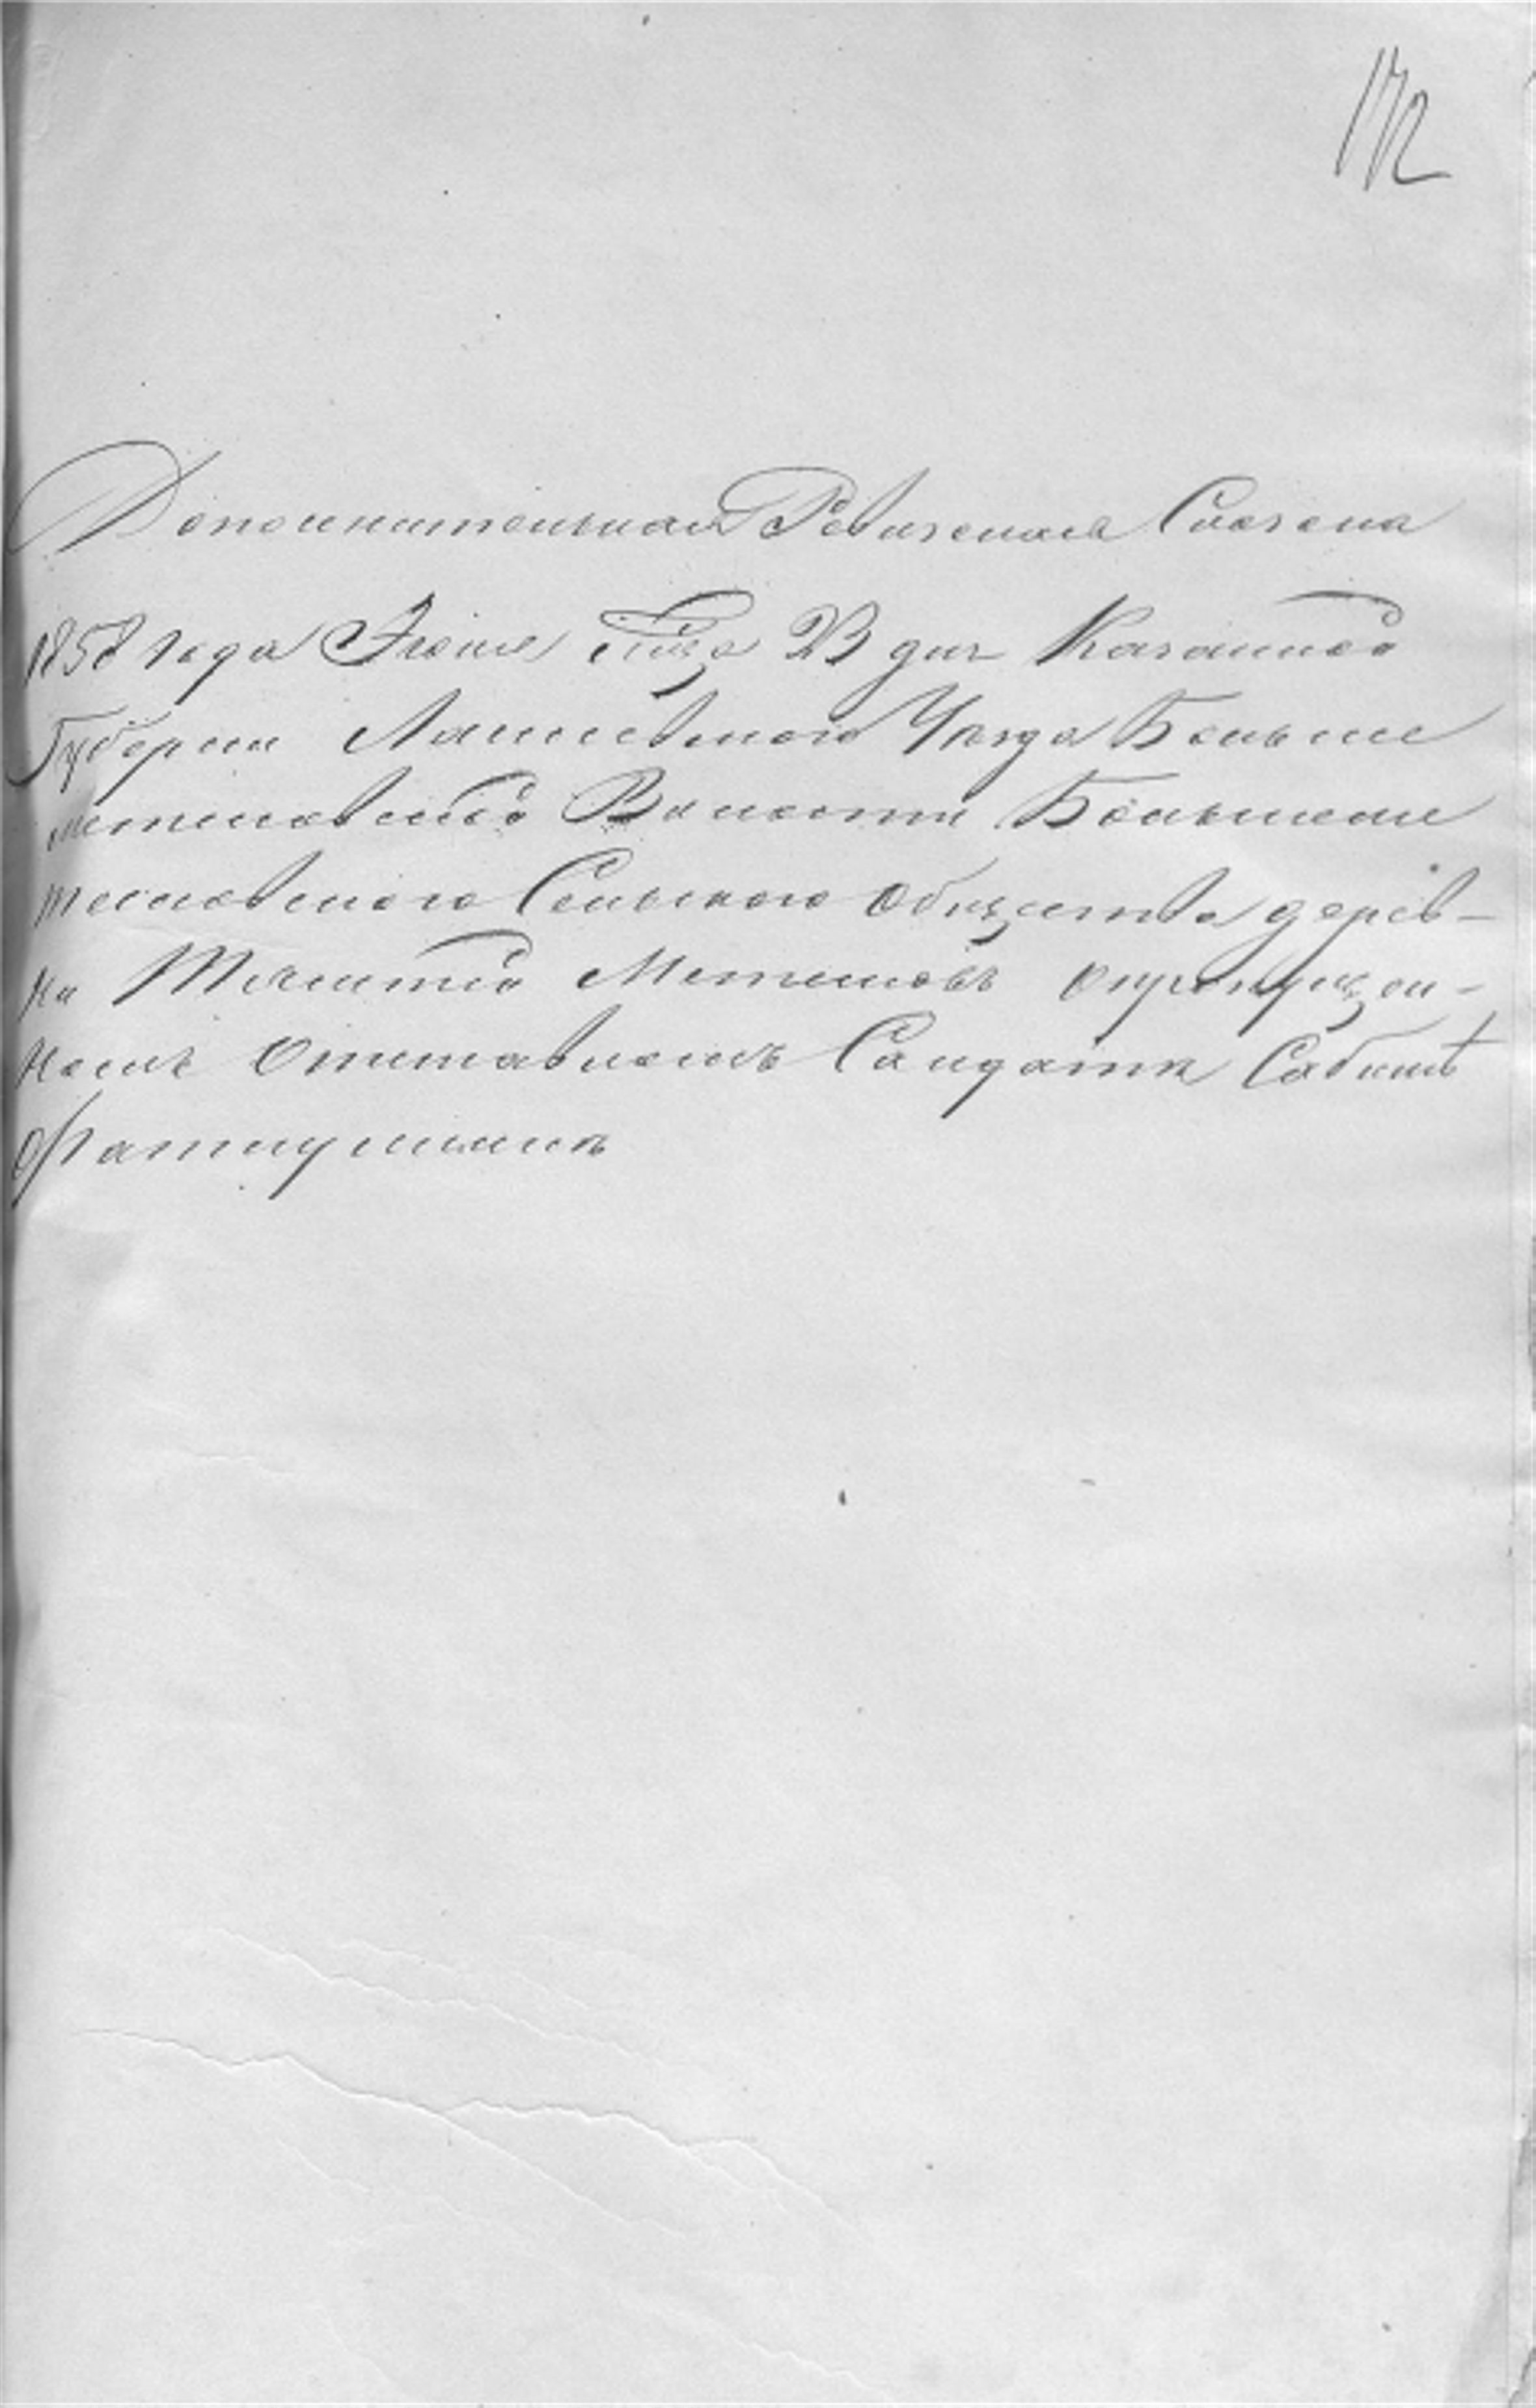 172
Дополнительная Ревизская Сказка
1858 года Июня м҃ца 23 дня Казанской
Губернии Лаишевского Уезда Больше
метесковской Волости Больше
метесковского Сельского Общества дерев-
ни Метесковъ опропущен-
номъ Отставномъ Солдатѣ Сабитѣ
Фаткуллинѣ